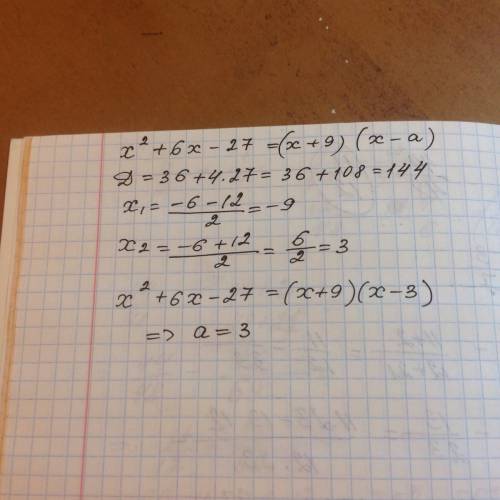 x² + 6x - 27 = (x + 9) (x - a)
Д = 36 + 4·27 = 36 + 108 = 144
x₁ = (-6 - 12)/2 = -9
x₂ = (-6 + 12)/2 = 6/2 = 3
x² + 6x - 27 = (x + 9)(x - 3)
=> a = 3